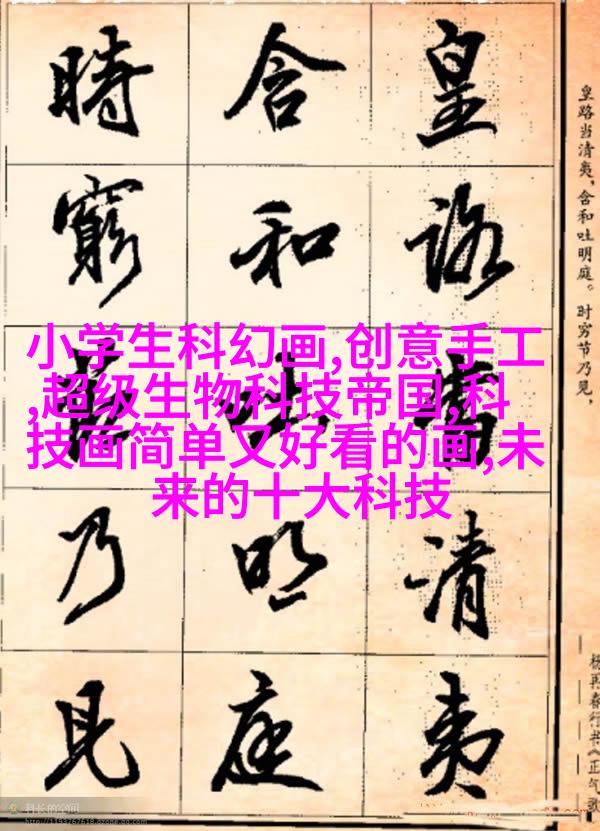 皇路當清夷
含和吐明庭
時窮節乃見
皇路当清夷,含和吐明庭。时穷节乃见,
杨再春行书《正气歌
小学生科幻画,创意手工
,超级生物科技帝国,科
技画简单又好看的画,未
来的十大科技
科长的空间